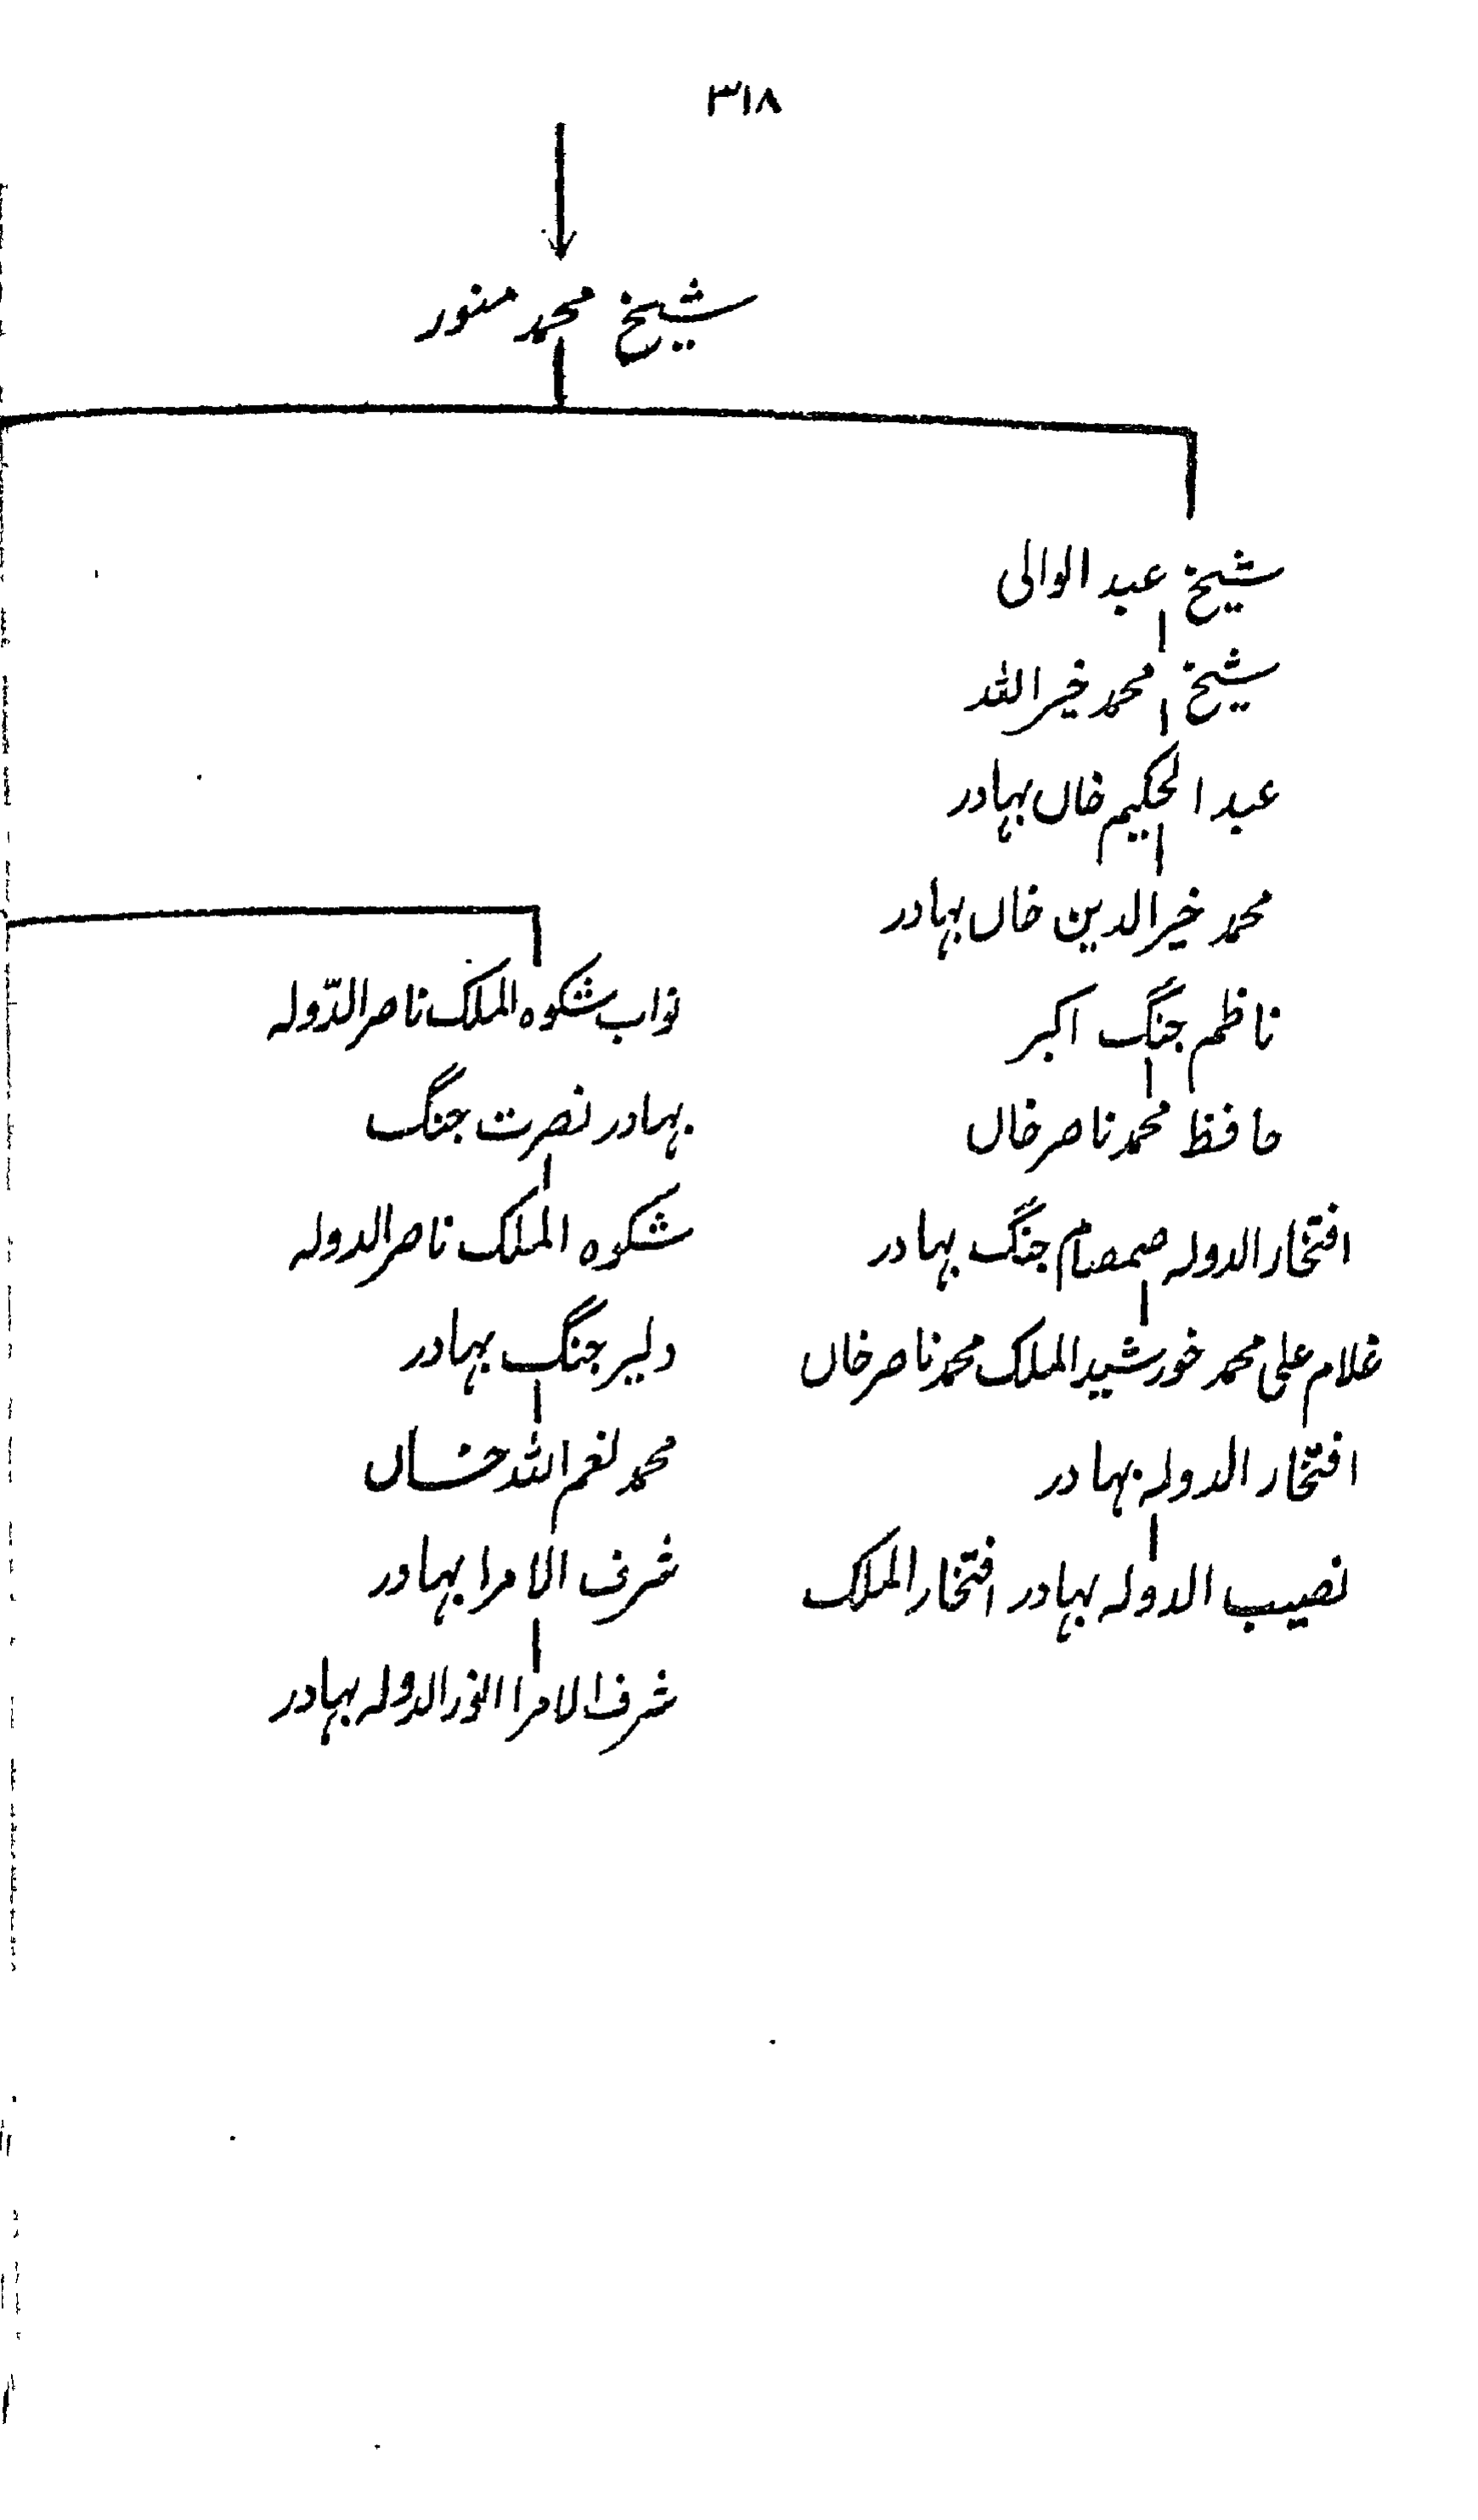 ۳۱۸
شیخ محمد منور
شیخ عبد الوالی
شیخ محمد خیر اللہ
عبد الحکیم خاں بہادر
محمد خیر الدین خاں بہادر
ناظم جنگ اکبر
حافظ محمد ناصر خاں
افتخار الدولہ صمصام جنگ بہادر
غلام علی محمد خورشید الملک محمد ناصر خاں
افتخار الدولہ بہادر
نصیب الدولہ بہادر افتخار الملک
نواب شکوہ الملک ناصر الدّولہ
بہادر نصرت جنگ
شکوہ الملک ناصر الدولہ
دلیر جنگ بہادر
محمد نعم اللہ خاں
شرف الامرا بہادر
شرف الامرا انور الدولہ بہادر